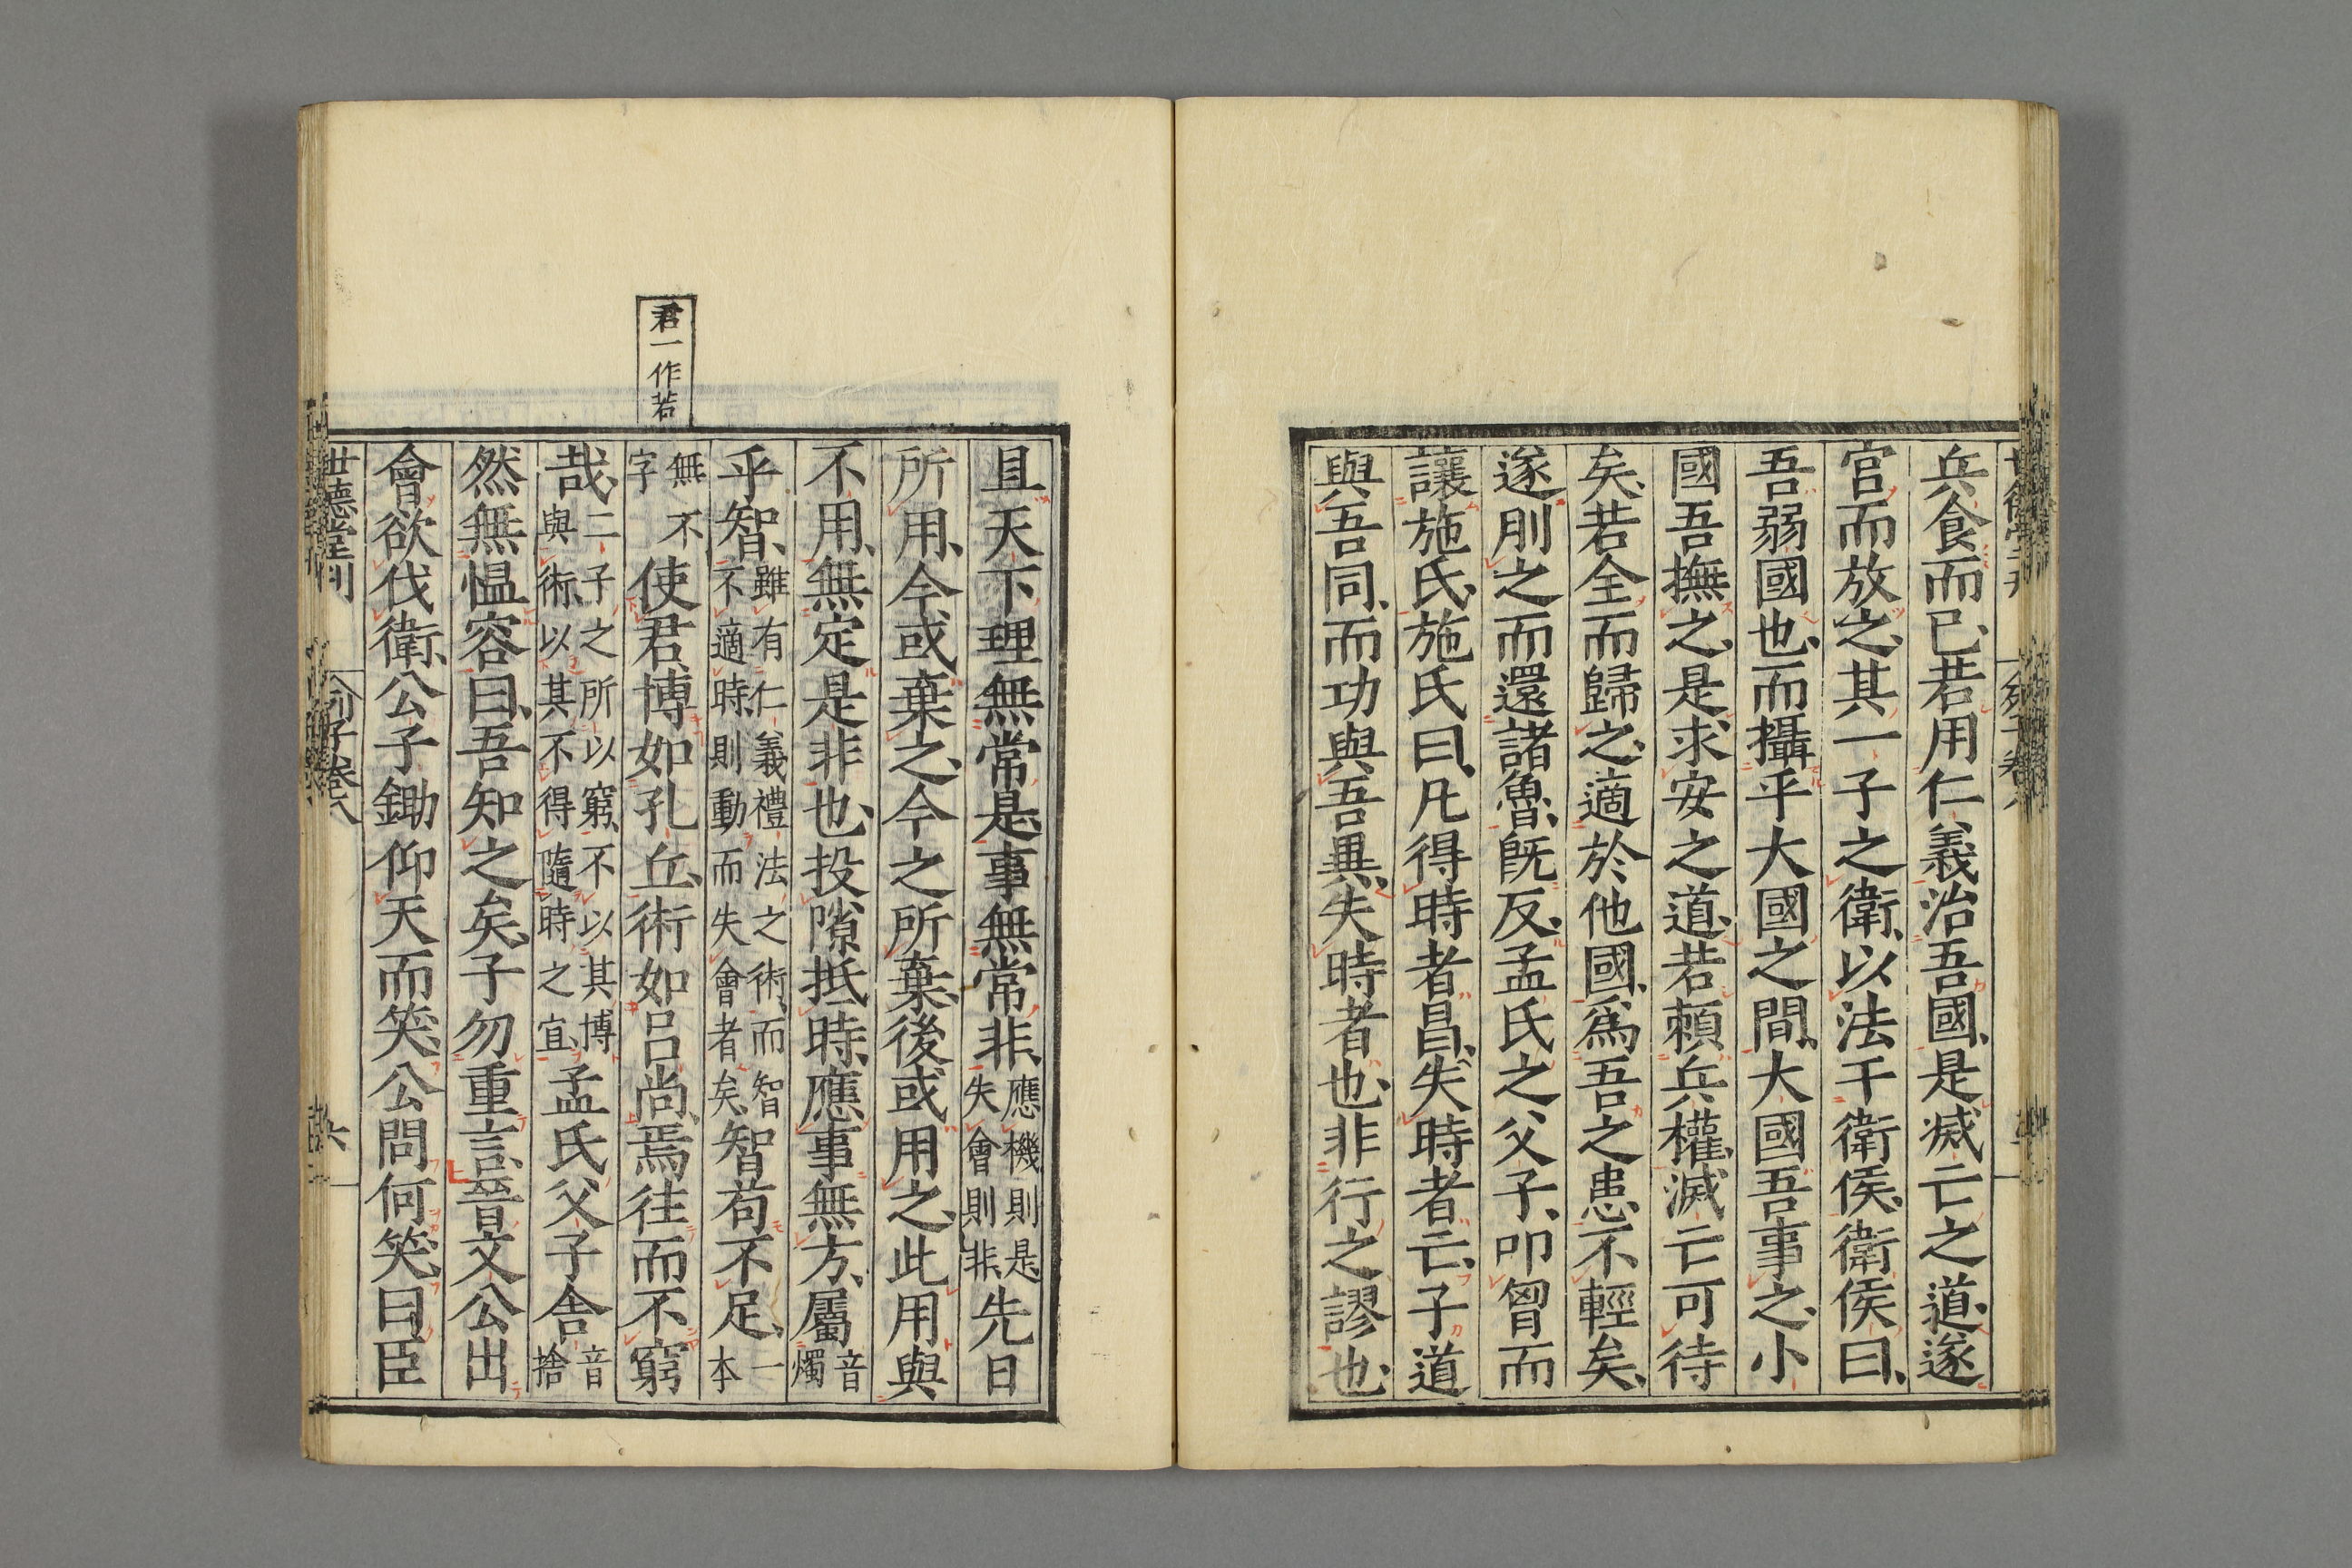 兵食而已若用仁義治吾國是滅亡之道遂
官而放之其一子之衛以法干衛侯衛侯曰
吾弱國也而攝乎大國之間大國吾事之小
國吾撫之是求安之道若賴兵權滅亡可待
矣若全而歸之適於他國爲吾之患不輕矣
遂刖之而還諸魯旣反孟氏之父子叩胷而
讓施氏施氏曰凡得時者昌失時者亡子道
與吾同而功與吾異失時者也非行之謬也
君一作若
且天下理無常是事無常非應機則是失會則非先日
所用今或棄之今之所棄後或用之此用與
不用無定是非也投隙抵時應事無方屬音燭
乎智雖有仁義禮法之術而智不適時則動而失會者矣智苟不足一本
無不字使君博如孔丘術如呂尚焉往而不窮
哉二子之所以窮不以其博與術以其不得隨時之宜孟氏父子舍音捨
然無慍容曰吾知之矣子勿重言晉文公出
會欲伐衛公子鋤仰天而笑公問何笑曰臣
世德堂刊 列子卷八